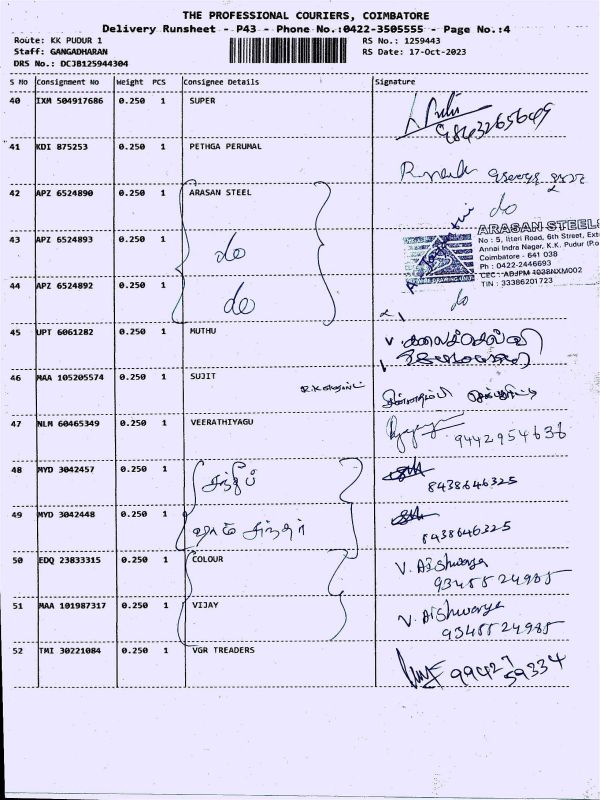 THE PROFESSIONAL COURIERS, COIMBATORE
Delivery Runsheet - P43 - Phone No.:0422-3505555 - Page No.:4
Route: KK PUDUR 1 RS No.: 1259443
Staff: GANGADHARAN RS Date: 17-Oct-2023
DRS No.: DCJB125944304
S No Consignment No Weight PCS Consignee Details Signature
40 IXM 504917686 0.250 1 SUPER
9843265649
41 KDI 875253 0.250 1 PETHGA PERUMAL
42 APZ 6524890 0.250 1 ARASAN STEEL do
43 APZ 6524893 0.250 1 do
ARASAN STEELS
No : 5, Itteri Road, 6th Street, Extn
Annai Indra Nagar, K.K. Pudur (P.o
Coimbatore - 641 038
Ph : 0422-2446693
CEC : ADJPM 4038NXM002
TIN : 33386201723
44 APZ 6524892 0.250 1 do do
45 UPT 6061282 0.250 1 MUTHU
46 MAA 105205574 0.250 1 SUJIT
47 NLM 60465349 0.250 1 VEERATHIYAGU
9442954636
48 MYD 3042457 0.250 1 8438646325
49 MYD 3042448 0.250 1 8438646325
50 EDQ 23833315 0.250 1 COLOUR V. Aishwarya
9345524985
51 MAA 101987317 0.250 1 VIJAY V. Aishwarya
9345524985
52 TMI 30221084 0.250 1 VGR TREADERS 99427
59334